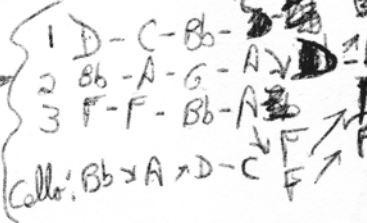 1 D - C - Bb -
2 Bb - A - G - A ↘ D
3 F - F - Bb - A
F
Cello: Bb ↘ A ↗ D - C
F